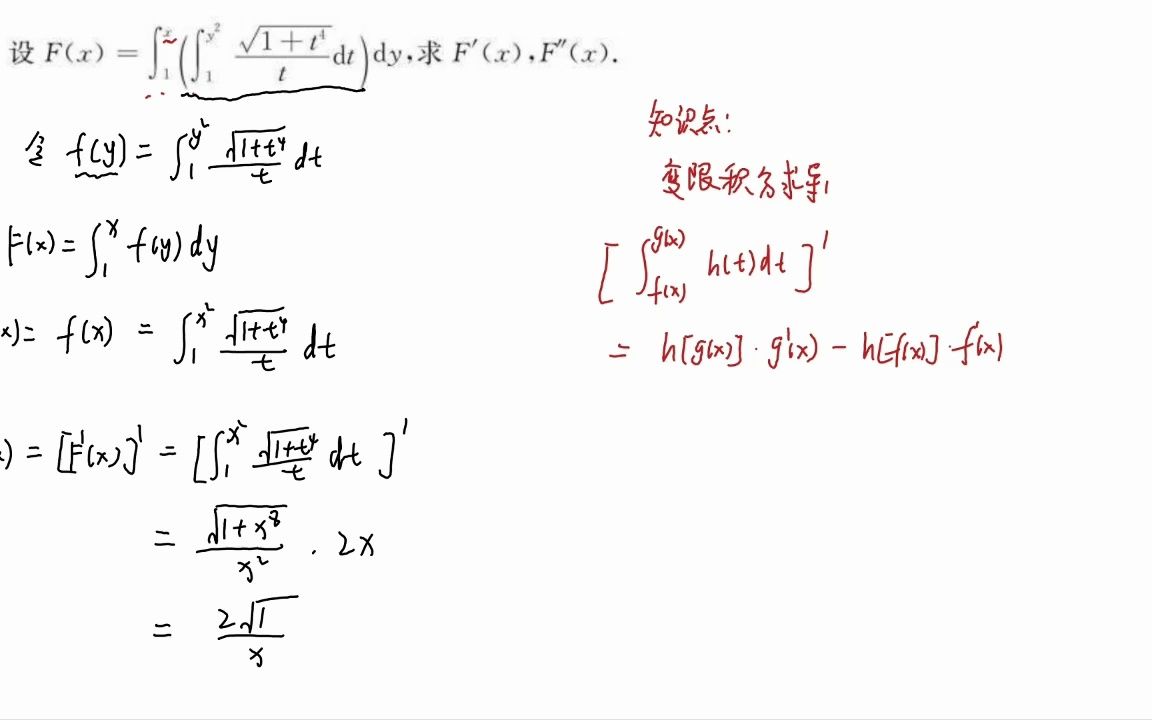 设 F(x) = ∫₁ˣ(∫₁^{y²} √(1+t⁴)/t dt)dy,求 F′(x),F″(x).
令 f(y) = ∫₁^{y²} √(1+t⁴)/t dt
F(x) = ∫₁ˣ f(y) dy
x) = f(x) = ∫₁^{x²} √(1+t⁴)/t dt
) = [F′(x)]′ = [∫₁^{x²} √(1+t⁴)/t dt]′
= √(1+x⁸)/x² · 2x
= 2√1/x
知识点:
变限积分求导,
[∫_{f(x)}^{g(x)} h(t)dt]′
= h[g(x)]·g′(x) − h[f(x)]·f′(x)